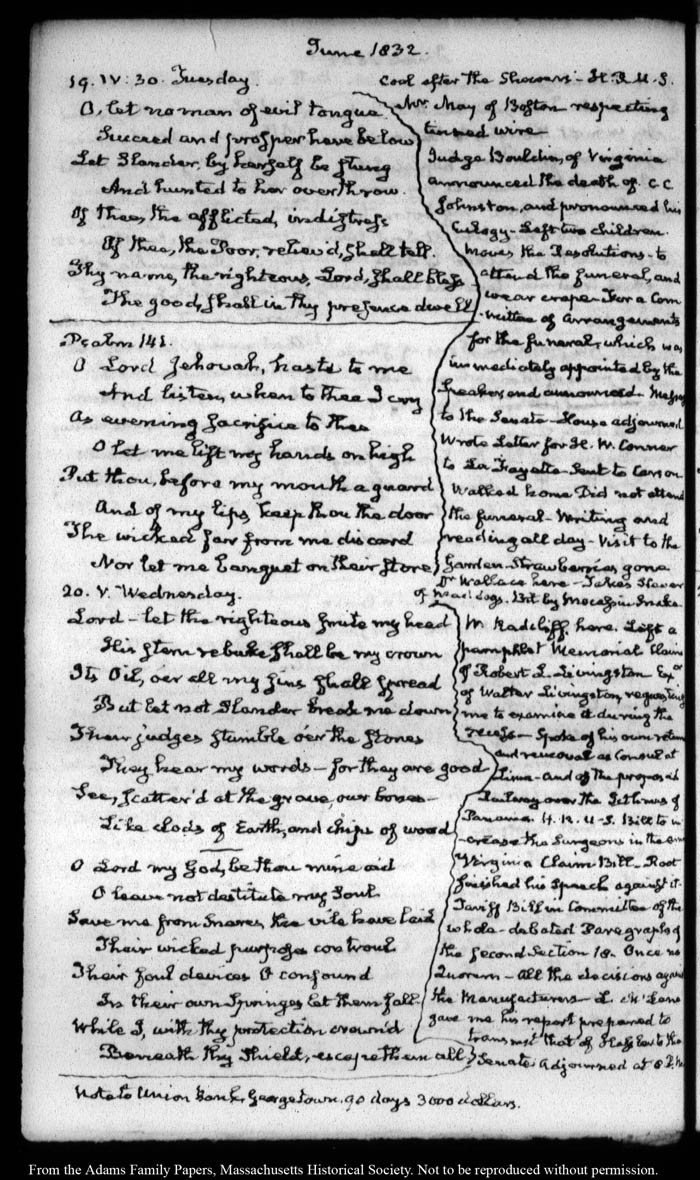 June 1832.
19. IV: 30. Tuesday.
O, let no man of evil tongue
Succeed and prosper here below
Let Slander, by herself be stung
And hunted to her overthrow.
Of thee, the afflicted, in distress
Of thee, the Poor, reliev'd, shall tell.
Thy name, the righteous, Lord, shall bless
The good, shall in thy presence dwell
Psalm 141.
O Lord Jehovah, haste to me
And listen, when to thee I cry
As evening sacrifice to thee
O let me lift my hands on high
Put thou, before my mouth a guard
And of my lips, keep thou the door
The wicked far from me discard
Nor let me banquet on their store
20. V. Wednesday.
Lord - let the righteous smite my head
His stern rebuke shall be my crown
Its Oil, oer all my sins shall spread
But let not Slander break me down
Their judges stumble o'er the stones
They hear my words - for they are good
See, scatter'd at the grave, our bones -
Like clods of Earth, and chips of wood
O Lord my God, be thou mine aid
O leave not destitute my soul
Save me from snares, the vile have laid
Their wicked purposes controul
Their foul devices O confound
In their own springes let them fall
While I, with thy protection crown'd
Beneath thy shield, escape them all
Cool after the Showers - H. R. U. S.
Mr. May of Boston respecting
tinned wire
Judge Bouldin, of Virginia
announced the death of C C
Johnston, and pronounced his
Eulogy - Left two children.
Moves the Resolutions - to
attend the funeral, and
wear crape - For a Com
-mittee of Arrangements
for the funeral, which was
immediately appointed by the
Speaker and announced - Message
to the Senate - House adjourned
Wrote Letter for H. W. Conner
to La Fayette - Sent to Carson
Walked home Did not attend
the funeral - Writing and
reading all day - Visit to the
Garden - Strawberries gone
Dr. Wallace here - Takes
of mad dogs. Bit by Moccasin Snake.
M. Radcliff. here. Left a
pamphlet Memorial Claim
of Robert L. Livingston Exor.
of Walter Livingston, requesting
me to examine it during the
recess - Spoke of his own return
and removal as Consul at
Lima - and of the proposed
Railway over the Isthmus of
Panama H. R. U. S. Bill to in
-crease the Surgeons in the
Virginia Claim Bill - Root
finished his Speech against it -
Tariff Bill in Committee of the
whole - debated Paragraphs of
the second Section 18. Once no
Quorum - All the decisions against
the Manufacturers - L. McLane
gave me his report prepared to
transmit that of to the
Senate Adjourned at
Note to Union Bank, Georgetown. 90 days 3000 dollars.
From the Adams Family Papers, Massachusetts Historical Society. Not to be reproduced without permission.